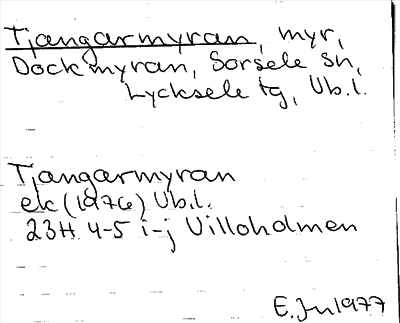 Tjangarmyran, myr,
Dockmyran, Sorsele sn,
Lycksele tg, Vb.l.
Tjangarmyran
ek (1976) Vb.l.
23H 4-5 i-j Villoholmen
E. Jn 1977